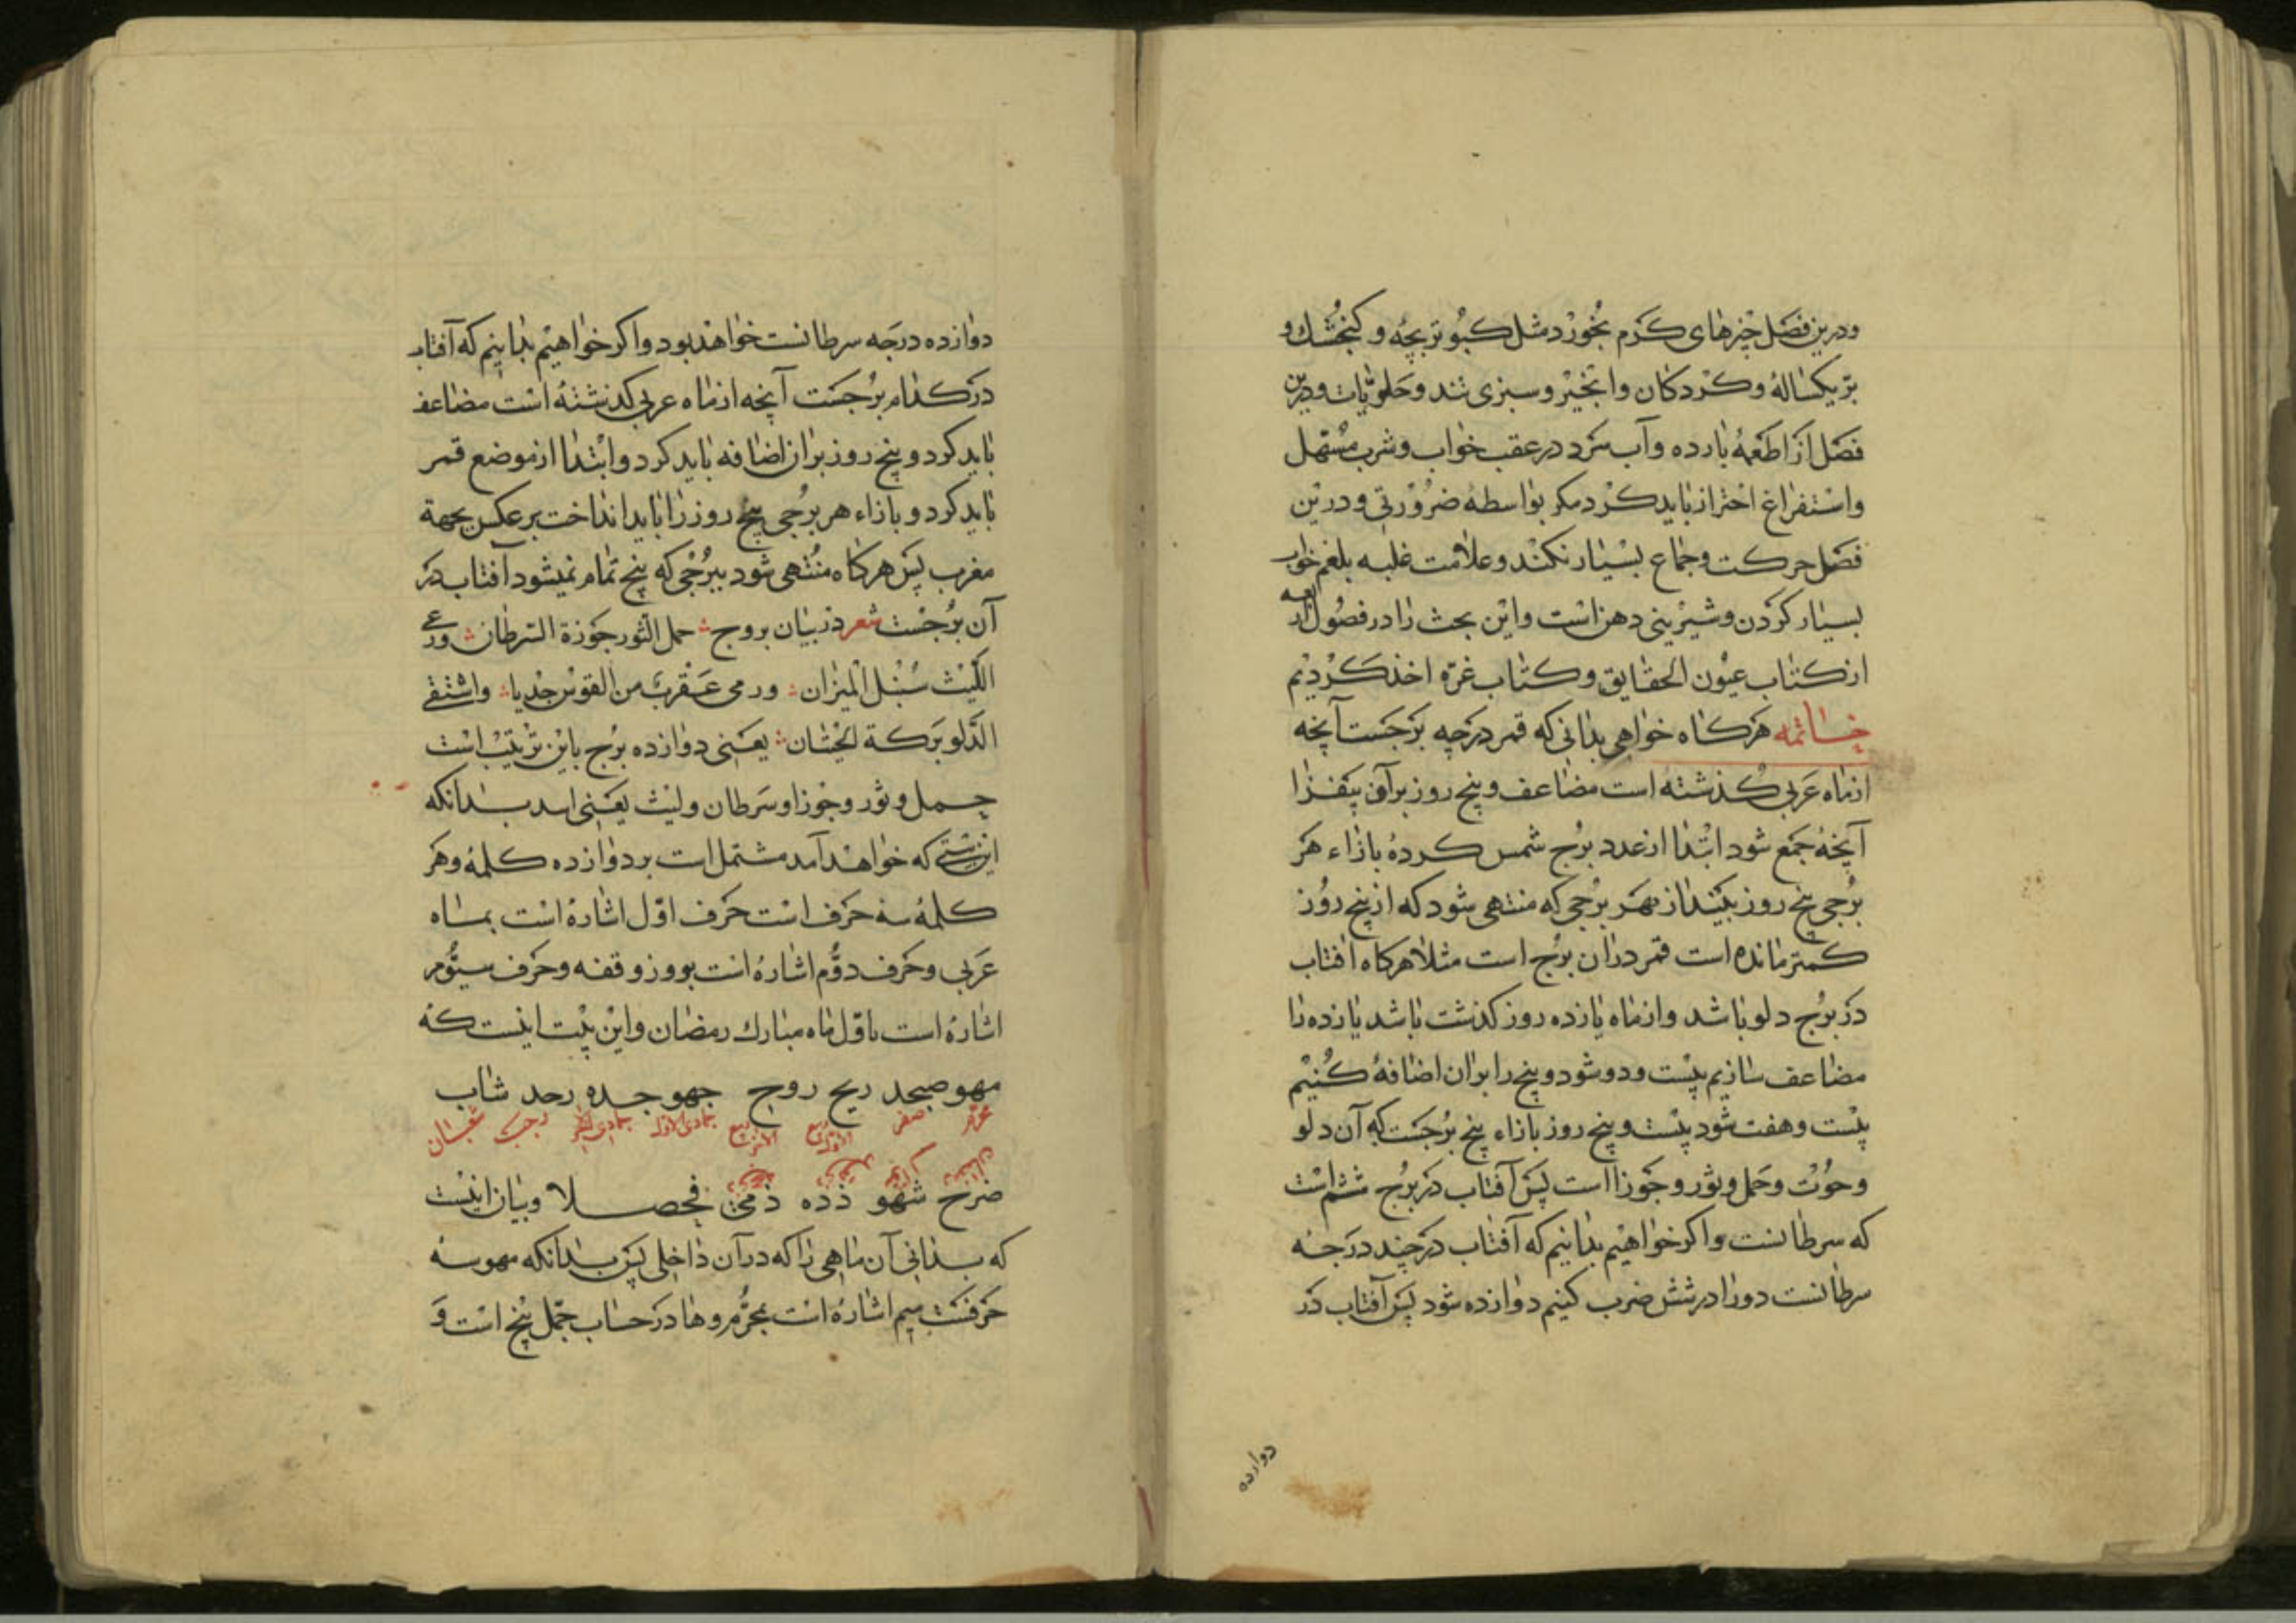 ودرین فصل چیزهای کرم بخورد مثل کبوتر بچه و کنجشك و
بز یکساله و کردکان وانجیر وسبزی تند وحلویات ودرین
فصل از اطعمهٔ بارده وآب سرد در عقب خواب وشرب مسهل
واستفراغ احتراز باید کرد مکر بواسطهٔ ضرورتی ودرین
فصل حرکت وجماع بسیار نکنند وعلامت غلبه بلغم خواب
بسیار کردن وشیرینی دهن است واین بحث را در فصول اربعه
از کتاب عیون الحقایق وکتاب غره اخذ کردیم
خاتمه هرکاه خواهی بدانی که قمر در چه برجست آنچه
از ماه عربی کذشته است مضاعف وپنج روز برآن بیفزا
آنچه جمع شود ابتدا از عدد برج شمس کرده بازاء هر
برجی پنج روز بینداز بهر برجی که منتهی شود که از پنج روز
کمتر مانده است قمر دران برج است مثلا هرکاه افتاب
در برج دلو باشد واز ماه یازده روز کذشت باشد یازده را
مضاعف سازیم بیست ودو شود وپنج را بران اضافه کنیم
بیست وهفت شود بیست وپنج روز بازاء پنج برجست که آن دلو
وحوت وحمل وثور وجوزا است پس آفتاب در برج ششم است
که سرطانست واکر خواهیم بدانیم که آفتاب در چند درجه
سرطانست دو را در شش ضرب کنیم دوازده شود پس آفتاب در
دوازده
دوازده درجه سرطانست خواهد بود واکر خواهیم بدانیم که آفتاب
در کدام برجست آنچه از ماه عربی کذشته است مضاعف
باید کرد وپنج روز بران اضافه باید کرد وابتدا از موضع قمر
باید کرد وبازاء هر برجی پنج روز را باید انداخت برعکس بجهة
مغرب پس هرکاه منتهی شود ببرجی که پنج تمام نمیشود آفتاب در
آن برجست شعر در بیان بروج حمل الثور جوزة السرطان ورعی
اللیث سنبل المیزان ورمی عقرب من القوس جدیا واستقی
الدلو برکة الحیتان یعنی دوازده برج باین ترتیب است
حمل وثور وجوزا وسرطان ولیث یعنی اسد بدانکه
این بیتی که خواهد آمد مشتمل است بر دوازده کلمه وهر
کلمه سه حرف است حرف اول اشاره است بماه
عربی وحرف دوم اشاره است بروز وقفه وحرف سیوم
اشاره است باول ماه مبارك رمضان واین بیت اینست که
مهو صبحد ریح روج جهو جده رحد شاب
محرم صفر ربیع الاول ربیع الاخر جمادی الاول جمادی الاخر رجب شعبان
ضرح شهو ذده ذمخ فحصلا وبیان اینست
که بدانی آن ماهی را که در آن داخلی پس بدانکه مهو سه
حرفست میم اشاره است بمحرم وها در حساب جمل پنج است و